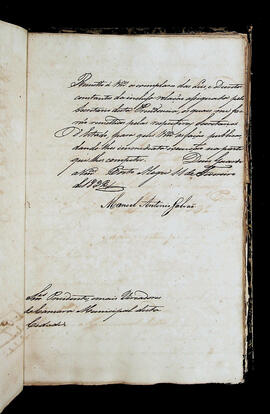 Remetto á V.Mces. os exemplares das Leis, e Decretos
constantes da inclusa relação assignada pelo
Secretario desta Provincia, os quaes me fo-
rão remettidos pelas respectivas Secretarias
d'Estado, para que V.Mces. os fação publicar,
dando lhes immediata execução na parte
que lhes competir. Deos Guarde
a V.Mces. Porto Alegre 11 de Fevereiro
de 1832
Manoel Antonio Galvão
Snrs. Presidente, e mais Vereadores
da Camara Municipal desta
Cidade